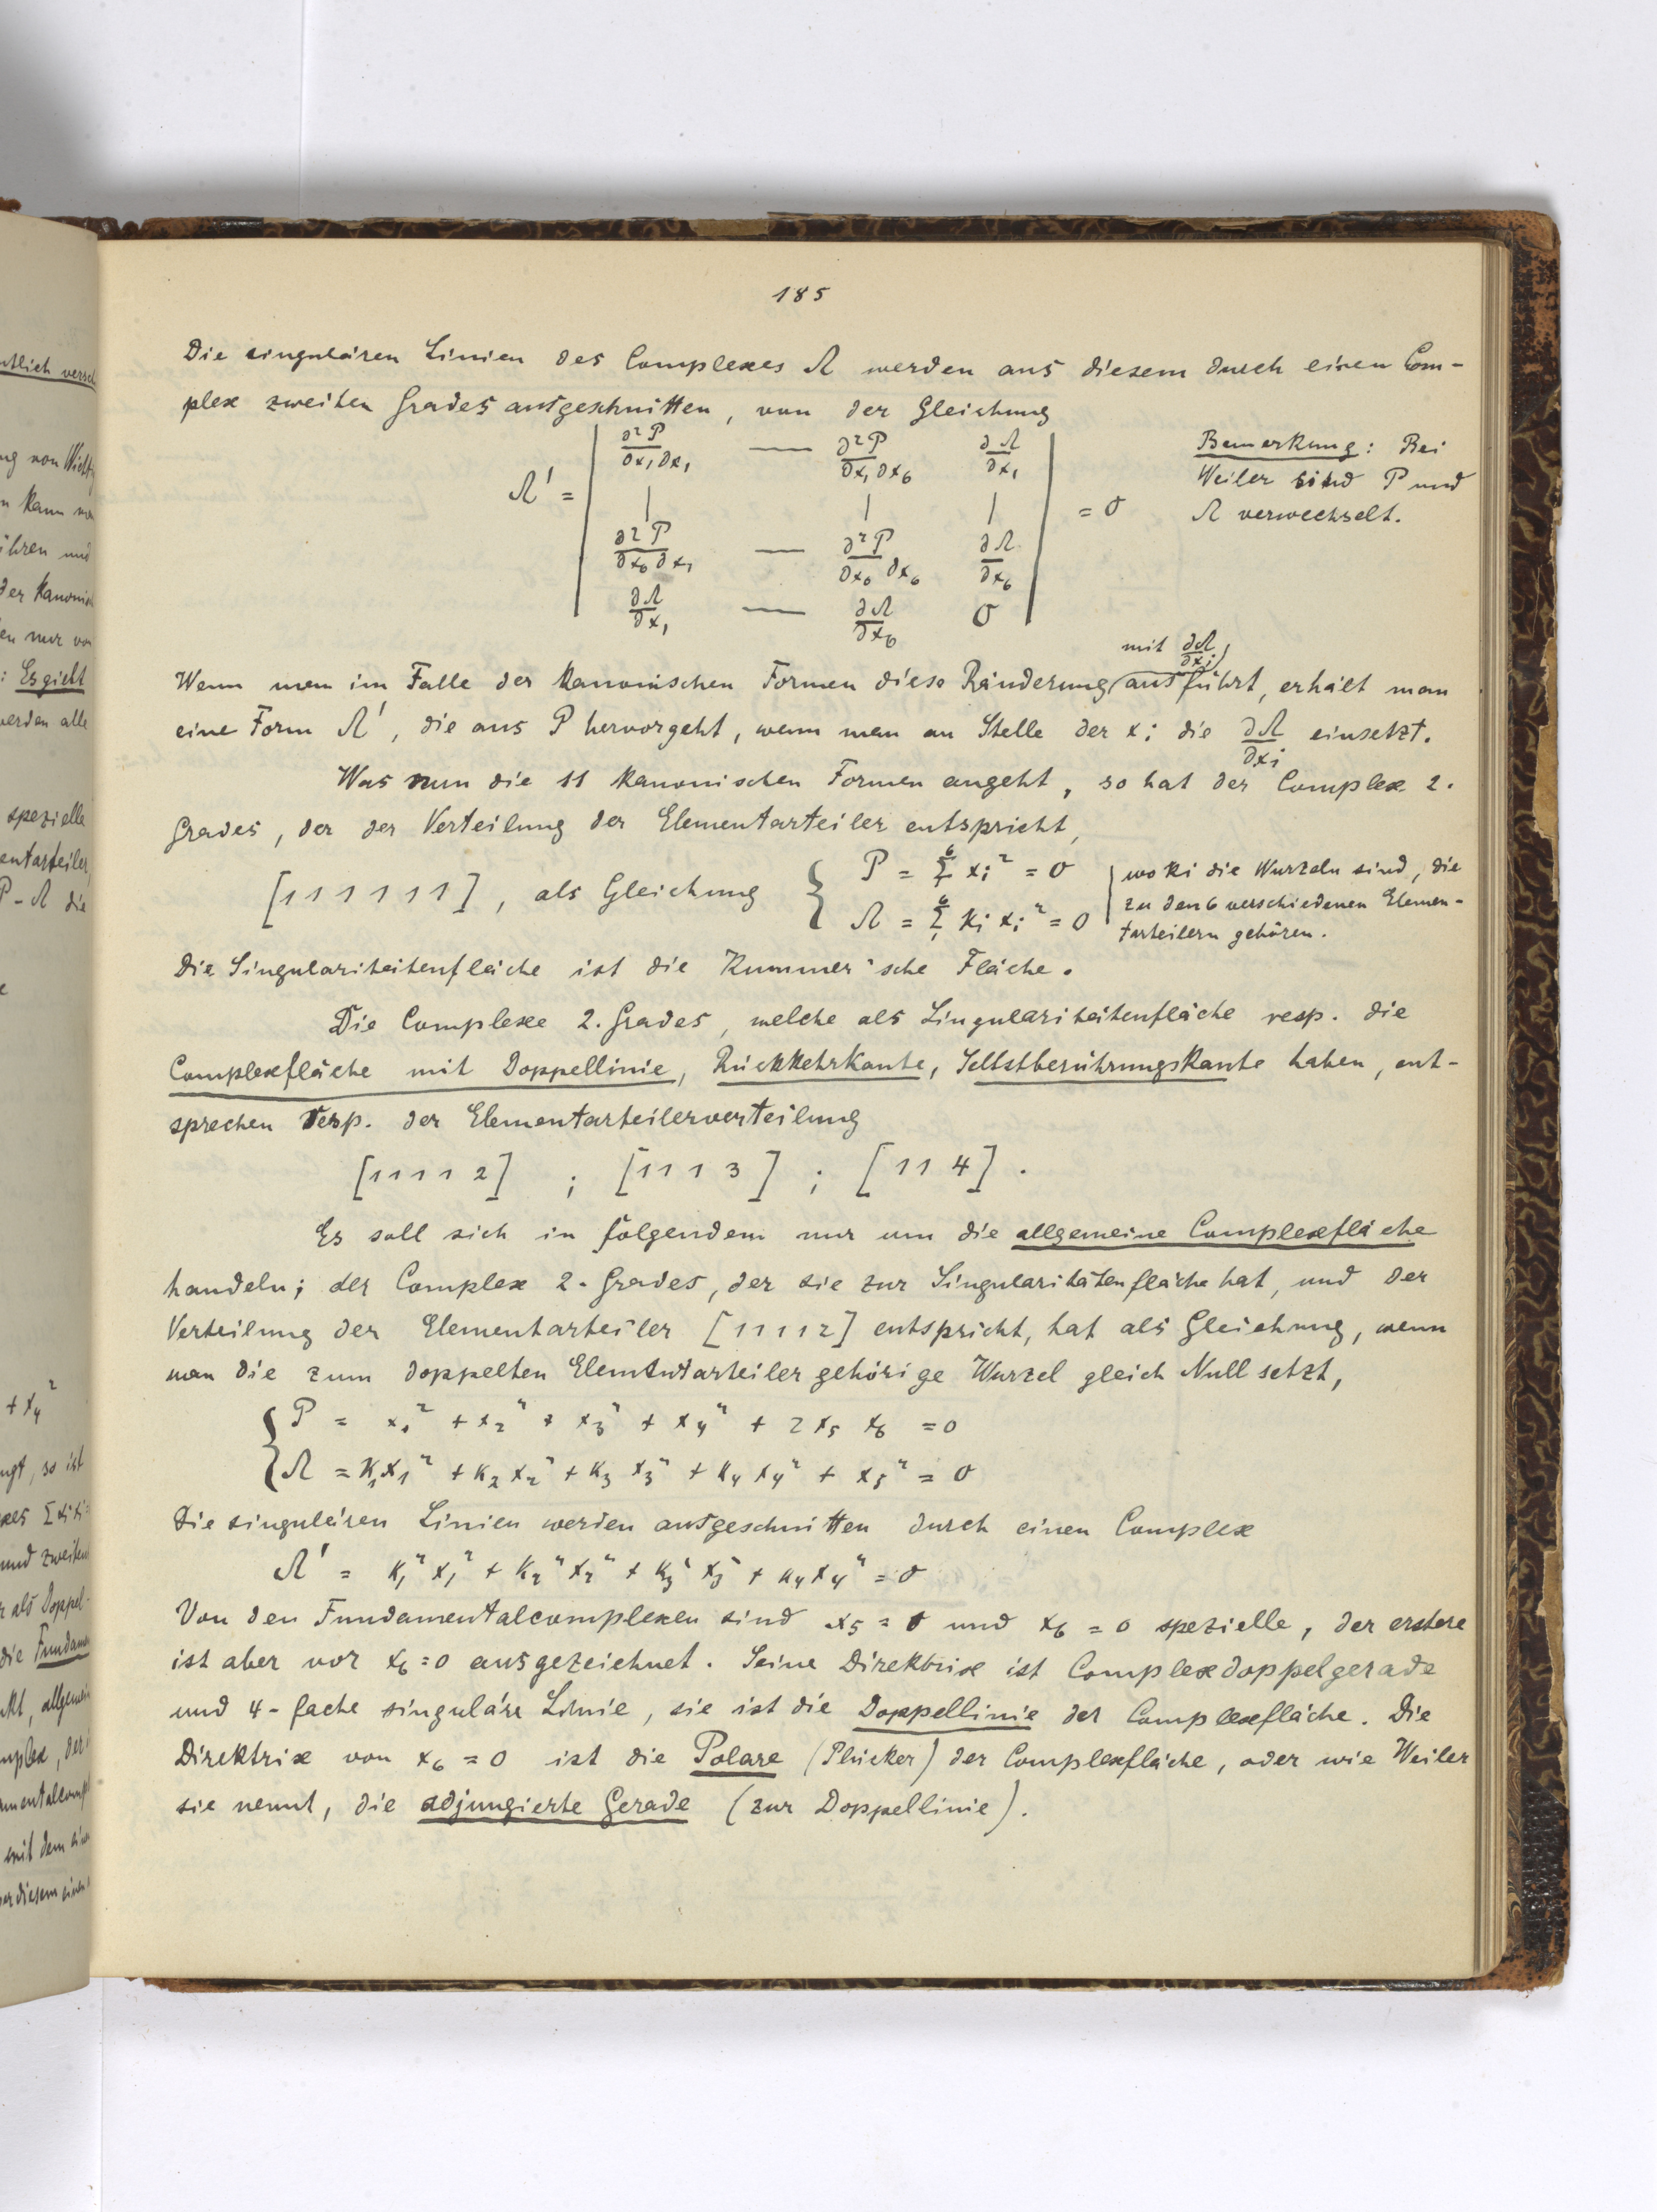 185
Die singulären Linien des Complexes Λ werden aus diesem durch einen Com-
plex zweiten Grades ausgeschnitten, von der Gleichung
Λ' = | ∂²P/∂x₁∂x₁ — ∂²P/∂x₁∂x₆ ∂Λ/∂x₁ |
| | |
| ∂²P/∂x₆∂x₁ — ∂²P/∂x₆∂x₆ ∂Λ/∂x₆ | = 0
| ∂Λ/∂x₁ — ∂Λ/∂x₆ 0 |
Bemerkung: Bei
Weiler sind P und
Λ verwechselt.
mit ∂Λ/∂xᵢ)
Wenn man im Falle der kanonischen Formen diese Ränderung (ausführt, erhält man
eine Form Λ', die aus P hervorgeht, wenn man an Stelle der xᵢ die ∂Λ/∂xᵢ einsetzt.
Was nun die 11 kanonischen Formen angeht, so hat der Complex 2.
Grades, der der Verteilung der Elementarteiler entspricht,
[1 1 1 1 1 1], als Gleichung { P = Σ₁⁶ xᵢ² = 0
Λ = Σ₁⁶ kᵢ xᵢ² = 0
| wo ki die Wurzeln sind, die
zu den 6 verschiedenen Elemen-
tarteilern gehören.
Die Singularitätenfläche ist die Kummer'sche Fläche.
Die Complexe 2. Grades, welche als Singularitätenfläche resp. die
Complexfläche mit Doppellinie, Rückkehrkante, Selbstberührungskante haben, ent-
sprechen resp. der Elementarteilerverteilung
[1 1 1 1 2] ; [1 1 1 3] ; [1 1 4].
Es soll sich in folgendem nur um die allgemeine Complexfläche
handeln; der Complex 2. Grades, der sie zur Singularitätenfläche hat, und der
Verteilung der Elementarteiler [1 1 1 1 2] entspricht, hat als Gleichung, wenn
man die zum doppelten Elementarteiler gehörige Wurzel gleich Null setzt,
{ P = x₁² + x₂² + x₃² + x₄² + 2 x₅ x₆ = 0
Λ = k₁x₁² + k₂x₂² + k₃x₃² + k₄x₄² + x₅² = 0
Die singulären Linien werden ausgeschnitten durch einen Complex
Λ' = k₁²x₁² + k₂²x₂² + k₃²x₃² + k₄x₄² = 0
Von den Fundamentalcomplexen sind x₅ = 0 und x₆ = 0 spezielle, der erstere
ist aber vor x₆ = 0 ausgezeichnet. Seine Direktrix ist Complexdoppelgerade
und 4-fache singuläre Linie, sie ist die Doppellinie der Complexfläche. Die
Direktrix von x₆ = 0 ist die Polare (Plücker) der Complexfläche, oder wie Weiler
sie nennt, die adjungierte Gerade (zur Doppellinie).